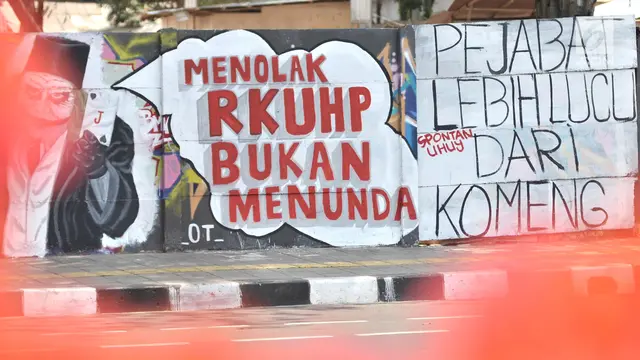 MENOLAK
RKUHP
BUKAN
MENUNDA
_OT_
J
PEJABAT
LEBIH LUCU
SPONTAN
UHUY
DARI
KOMENG